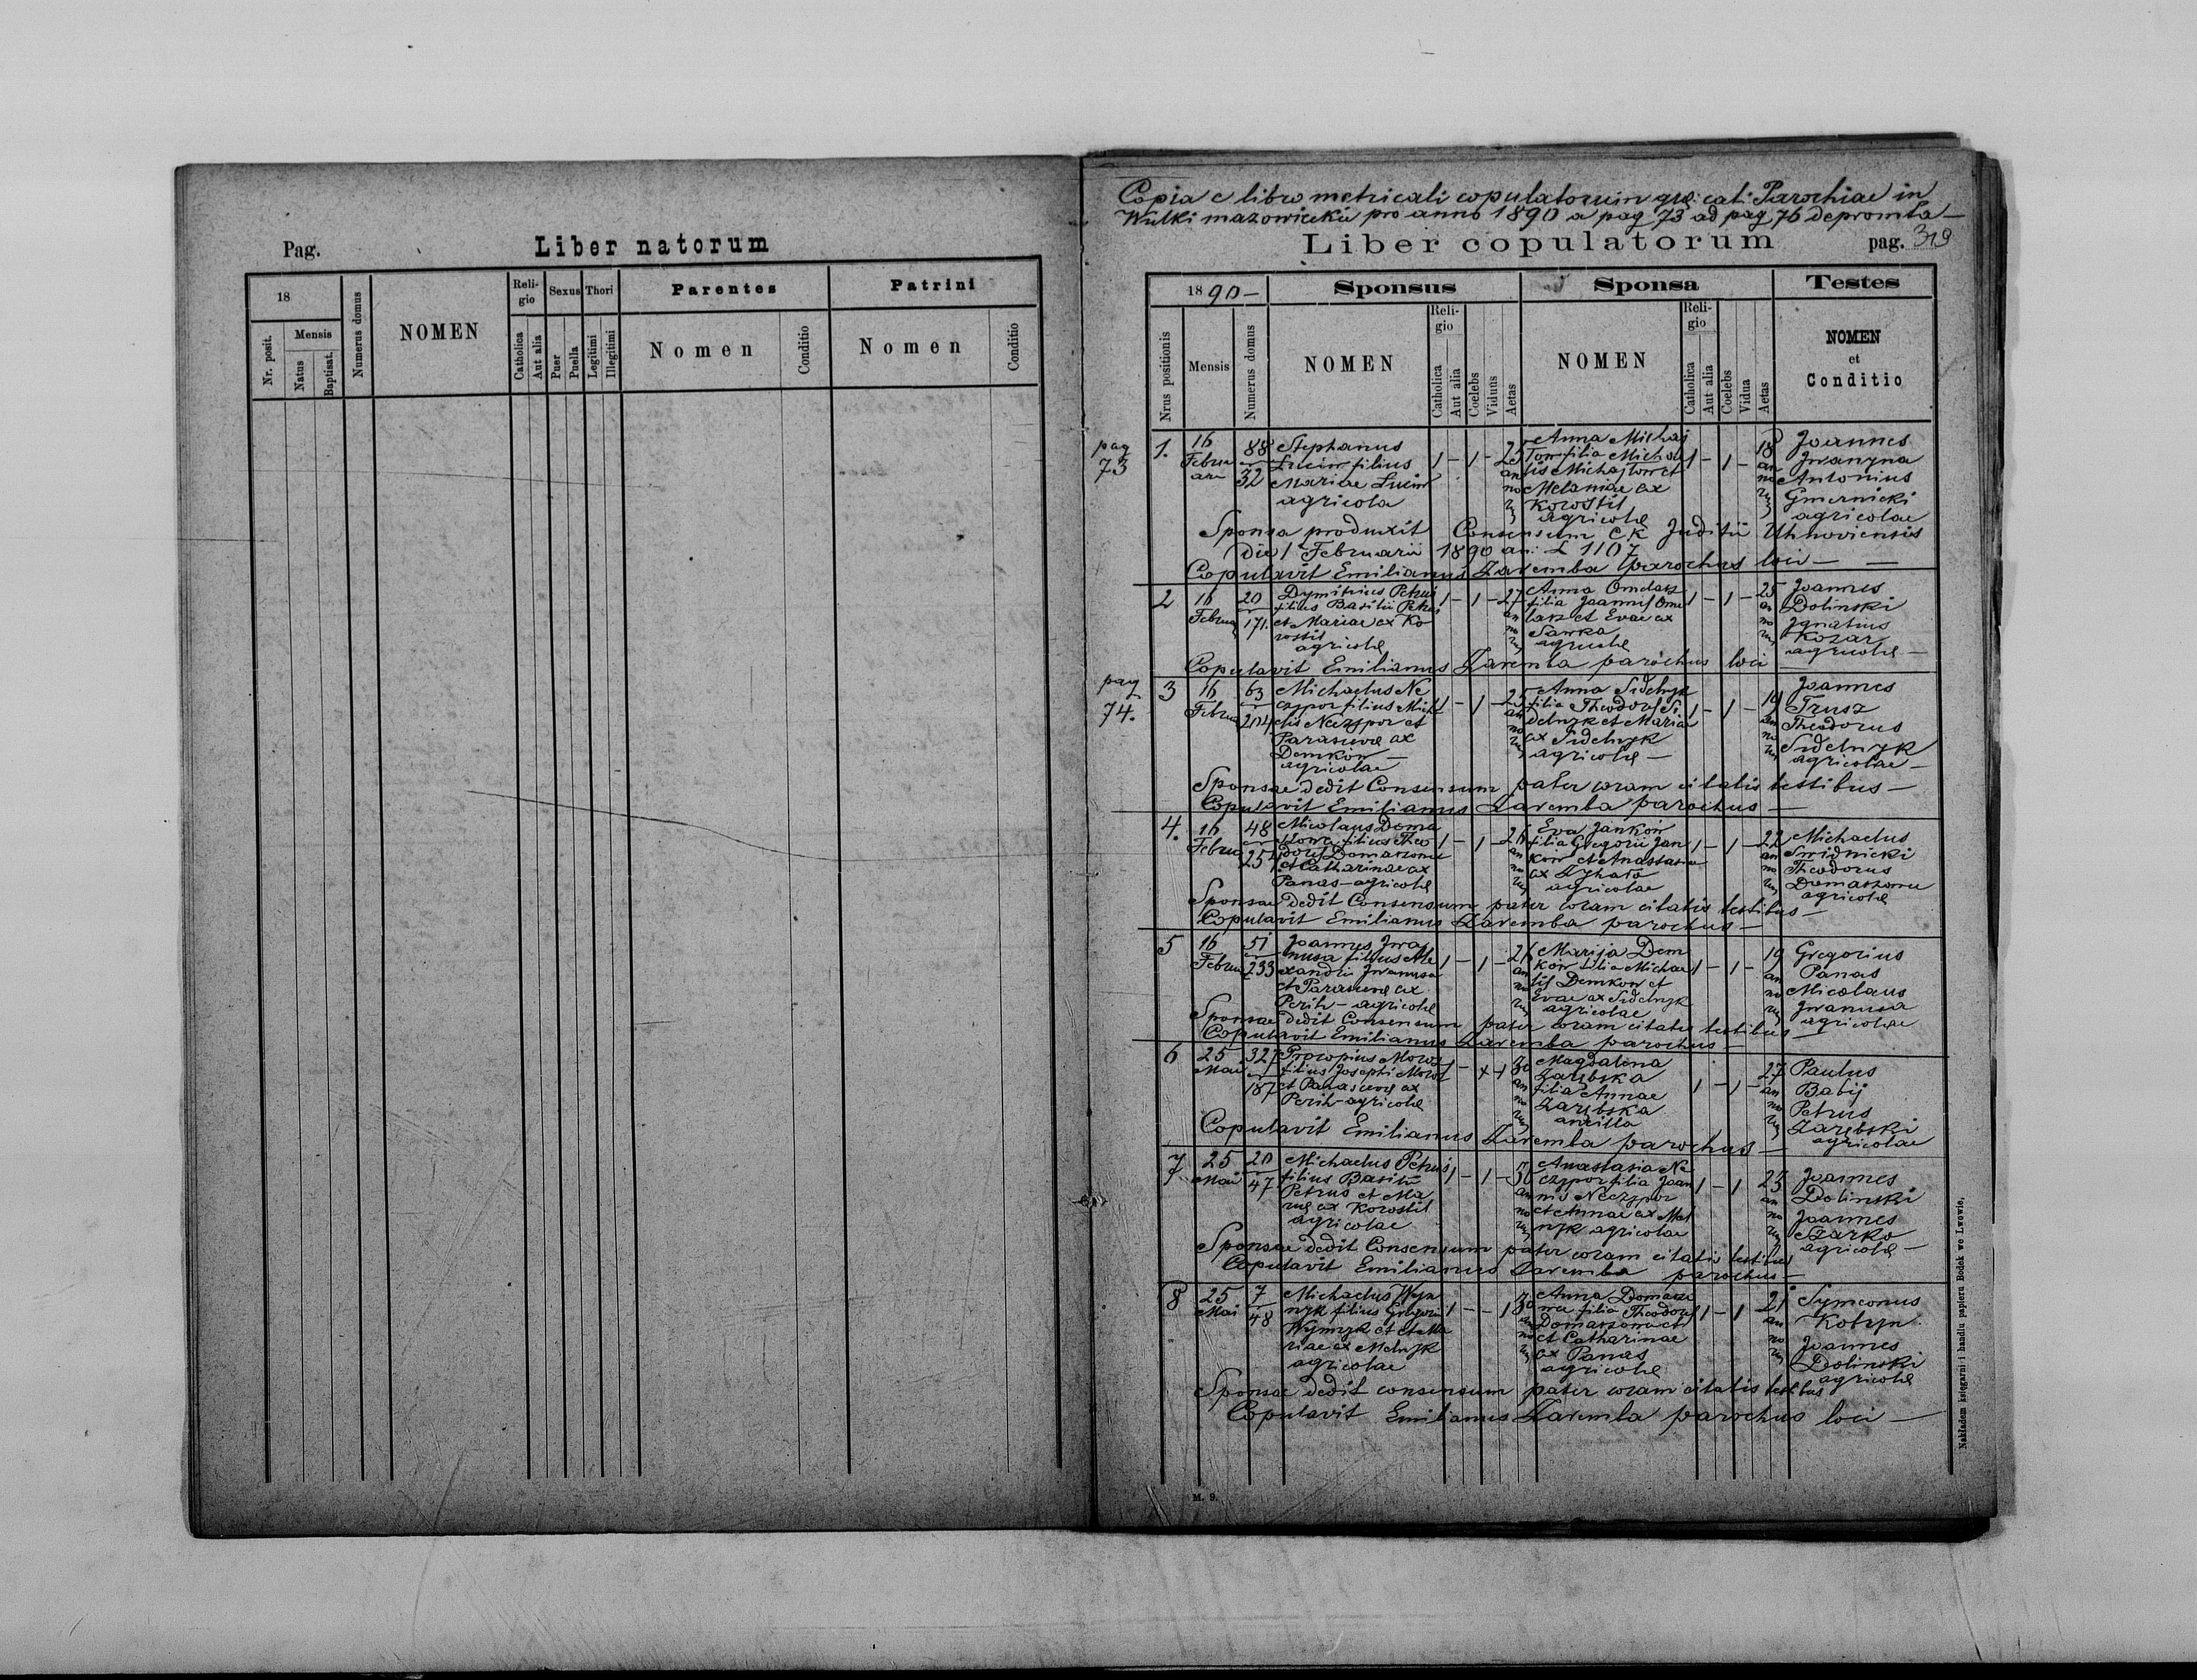 Pag.
Liber natorum
18
Nr. posit.
Mensis
Natus
Baptisat.
Numerus domus
NOMEN
Reli-
gio
Catholica
Aut alia
Sexus
Puer
Puella
Thori
Legitimi
Illegitimi
Parentes
Nomen
Conditio
Patrini
Nomen
Conditio
Copia e libro metricali copulatorum gr. cat. Parochiae in
Wulki mazowiecka pro anno 1890 a pag 73 ad pag 76 depromta
Liber copulatorum
pag. 319
1890
Sponsus
Sponsa
Testes
Nrus positionis
Mensis
Numerus domus
NOMEN
Reli-
gio
Catholica
Aut alia
Coelebs
Viduus
Aetas
NOMEN
Reli-
gio
Catholica
Aut alia
Coelebs
Vidua
Aetas
NOMEN
et
Conditio
pag
73
1.
16
Febru
arii
88
32
Stephanus
filius
Mariae
agricola
1 - 1 - 25
an
no
Anna Michaj
low filia Micha
lis Michajlow et
Melaniae ex
Korostil
agricolae
1 - 1 - 18
an
no
Joannes
Iwanyna
Antonius
Gmernicki
agricolae
Sponsa produxit Consensum C K Juditii Uhnoviensis
die 1 Februarii 1890 an: L 1107
Copulavit Emilianus Zaremba parochus loci
2
16
Februa
20
171.
Dymitrius Petrus
filius Basilii Petrus
et Mariae ex Ko
rostil
agricolae
1 - 1 - 27
an
no
Anna Omelasz
filia Joannis Ome
lasz et Evae ex
Sawka
agricolae
1 - 1 - 25
an
no
Joannes
Dolinski
Ignatius
Kozar
agricolae
Copulavit Emilianus Zaremba parochus loci
pag
74.
3
16
Februa
63
204
Michaelus Ne
czypor filius Micha
elis Neczypor et
Parascevae ex
Demkow
agricolae
1 - 1 - 25
an
no
Anna Sidelnyk
filia Theodori Si
delnyk et Mariae
ex Sidelnyk
agricolae
1 - 1 - 19
an
no
Joannes
Trusz
Theodorus
Sidelnyk
agricolae
Sponsae dedit Consensum pater coram citatis testibus
Copulavit Emilianus Zaremba parochus
4.
16
Februa
48
254
Nicolaus Doma
szowec filius Theo
dori Domaszowec
et Catharinae ex
Panas - agricolae
1 - 1 - 26
an
no
Eva Jankow
filia Gregorii Jan
kow et Anastasiae
ex
agricolae
1 - 1 - 22
an
no
Michaelus
Smidnicki
Theodorus
Domaszowec
agricolae
Sponsae dedit Consensum pater coram citatis testibus
Copulavit Emilianus Zaremba parochus
5
16
Februa
51
233
Joannes Iwa
nusa filius Ale
xandri Iwanusa
et Parascevae ex
Perih - agricolae
1 - 1 - 26
an
no
Marija Dem
kow filia Michae
lis Demkow et
Evae ex Sidelnyk
agricolae
1 - 1 - 19
an
no
Gregorius
Panas
Nicolaus
Iwanusa
agricolae
Sponsae dedit Consensum pater coram citatis testibus
Copulavit Emilianus Zaremba parochus
6
25
Maii
327
187
Procopius Moroz
filius Josephi Moroz
et Parascevae ex
Perih - agricolae
30
an
no
Magdalena
Zarębska
filia Annae
Zarębska
ancilla
1 - 1 - 27
an
no
Paulus
Babij
Petrus
Zarębski
agricolae
Copulavit Emilianus Zaremba parochus
7
25
Maii
20
47
Michaelus Petrus
filius Basilii
Petrus et Ma
riae ex Korostil
agricolae
1 - 1 - 30
an
no
Anastasia Ne
czypor filia Joan
nis Neczypor
et Annae ex Mel
nyk agricolae
1 - 1 25
an
no
Joannes
Dolinski
Joannes
Szarko
agricolae
Sponsae dedit Consensum pater coram citatis testibus
Copulavit Emilianus Zaremba parochus
8
25
Maii
7
48
Michaelus Wyn
nyk filius Gregorii
Wynnyk et Ma
riae ex Melnyk
agricolae
1 - - 1 30
an
no
Anna Domaszo
wec filia Theodori
Domaszowec et
et Catharinae
ex Panas
agricolae
1 - 1 21
an
no
Symeonus
Kobryn
Joannes
Dolinski
agricolae
Sponsae dedit consensum pater coram citatis testibus
Copulavit Emilianus Zaremba parochus loci
M. 9.
Nakładem księgarni i handlu papieru Bodek we Lwowie.